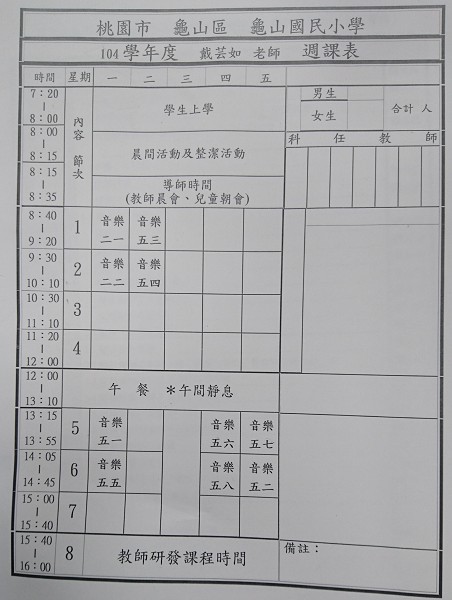 桃園市 龜山區 龜山國民小學
104學年度 戴芸如 老師 週課表
時間 星期 一 二 三 四 五
內容 節次
7：20
8：00
學生上學
男生
女生
合計 人
8：00
8：15
晨間活動及整潔活動
科任教師
8：15
8：35
導師時間
(教師晨會、兒童朝會)
8：40
9：20
1
音樂 二一
音樂 五三
9：30
10：10
2
音樂 二二
音樂 五四
10：30
11：10
3
11：20
12：00
4
12：00
13：10
午 餐 ＊午間靜息
13：15
13：55
5
音樂 五一
音樂 五六
音樂 五七
14：05
14：45
6
音樂 五五
音樂 五八
音樂 五二
15：00
15：40
7
15：40
16：00
8
教師研發課程時間
備註：